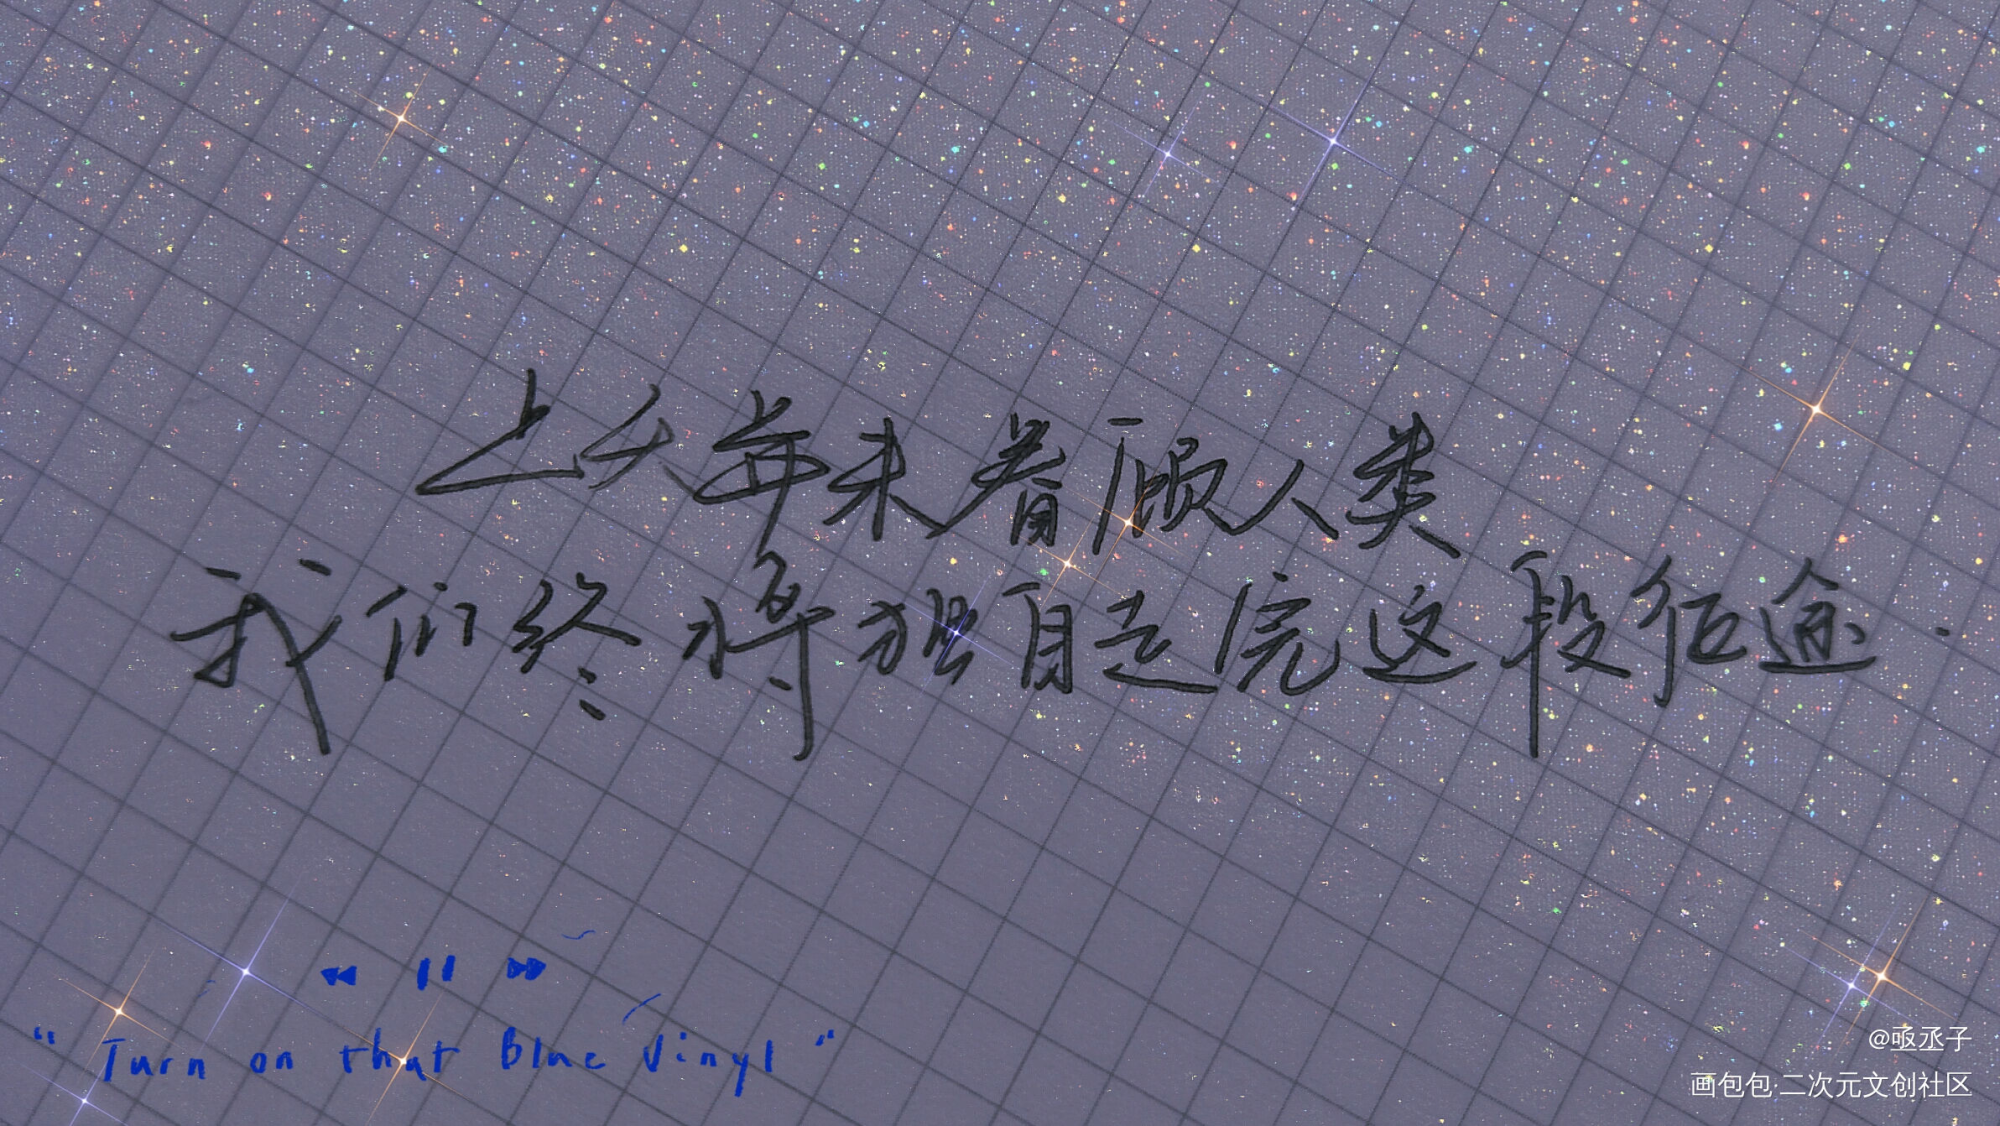 上天并未眷顾人类
我们终将独自走完这段征途.
“Turn on that Blue Vinyl“
@亟丞子
画包包·二次元文创社区